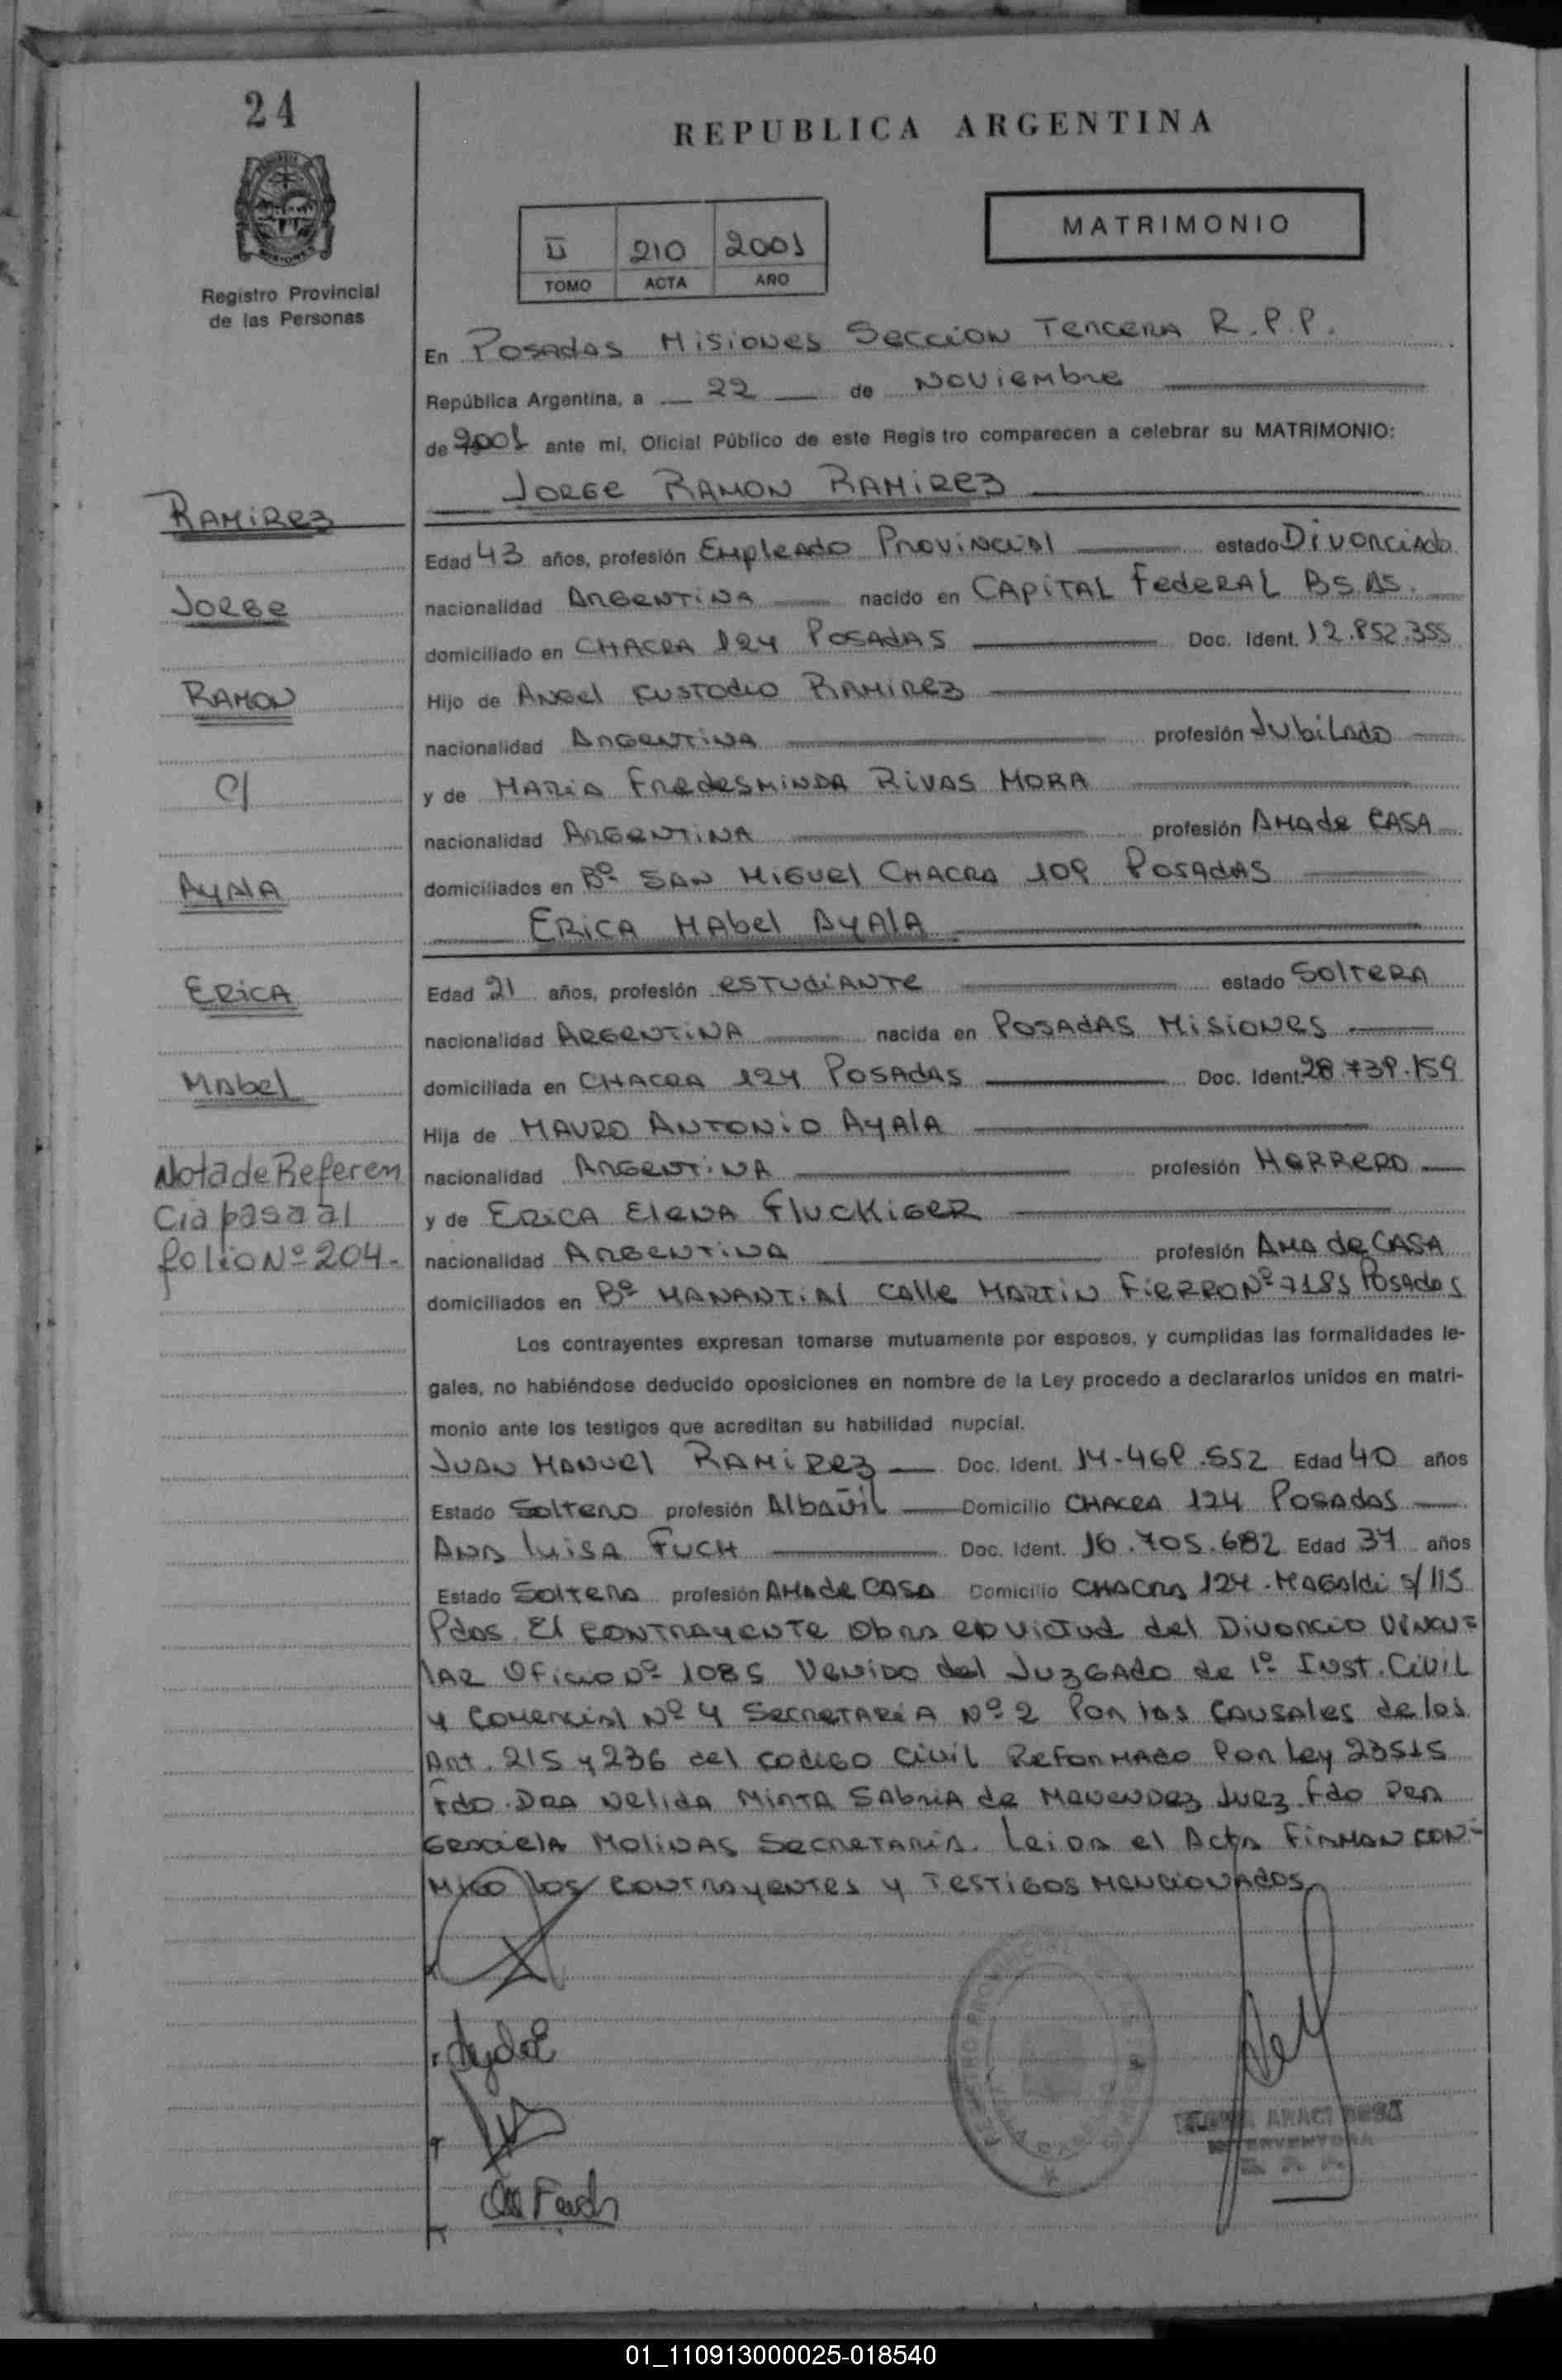 24
REPUBLICA ARGENTINA
MATRIMONIO
II 210 2001
TOMO ACTA AÑO
Registro Provincial
de las Personas
En Posadas Misiones Seccion Tercera R.P.P.
República Argentina, a 22 de Noviembre
de 2001 ante mí, Oficial Público de este Registro comparecen a celebrar su MATRIMONIO:
Jorge Ramon Ramirez
Edad 43 años, profesión Empleado Provincial estado Divorciado
nacionalidad Argentina nacido en Capital Federal Bs. As.
domiciliado en Chacra 124 Posadas Doc. Ident. 12.852.355
Hijo de Angel Custodio Ramirez
nacionalidad Argentina profesión Jubilado
y de Maria Fredesminda Rivas Mora
nacionalidad Argentina profesión Ama de Casa
domiciliados en Bº San Miguel Chacra 109 Posadas
Erica Mabel Ayala
Edad 21 años, profesión estudiante estado Soltera
nacionalidad Argentina nacida en Posadas Misiones
domiciliada en Chacra 124 Posadas Doc. Ident. 28.739.159
Hija de Mauro Antonio Ayala
nacionalidad Argentina profesión Herrero
y de Erica Elena Fluckiger
nacionalidad Argentina profesión Ama de Casa
domiciliados en Bº Manantial Calle Martin Fierro Nº 7185 Posadas
Los contrayentes expresan tomarse mutuamente por esposos, y cumplidas las formalidades le-
gales, no habiéndose deducido oposiciones en nombre de la Ley procedo a declararlos unidos en matri-
monio ante los testigos que acreditan su habilidad nupcial.
Juan Manuel Ramirez Doc. Ident. 14.469.552 Edad 40 años
Estado Soltero profesión Albañil Domicilio Chacra 124 Posadas
Ana Luisa Fuch Doc. Ident. 16.705.682 Edad 37 años
Estado Soltera profesión Ama de Casa Domicilio Chacra 124. Magaldi s/115
Pdas. El contrayente obra en virtud del Divorcio Vincu=
lar Oficio Nº 1085 Venido del Juzgado de 1º Inst. Civil
y Comercial Nº 4 Secretaria Nº 2 Por las Causales de los
Art. 215 y 236 del codigo Civil Reformado Por Ley 23515
Fdo. Dra Nelida Mirta Sabria de Menendez Juez. Fdo Dra
Graciela Molinas Secretaria. Leida el Acta Firman con-
migo los contrayentes y Testigos mencionados
Ramirez
Jorge
Ramon
C/
Ayala
Erica
Mabel
Nota de Referen
cia pasa al
folio Nº 204.-
ARACI
INTERVENTORA
01_110913000025-018540